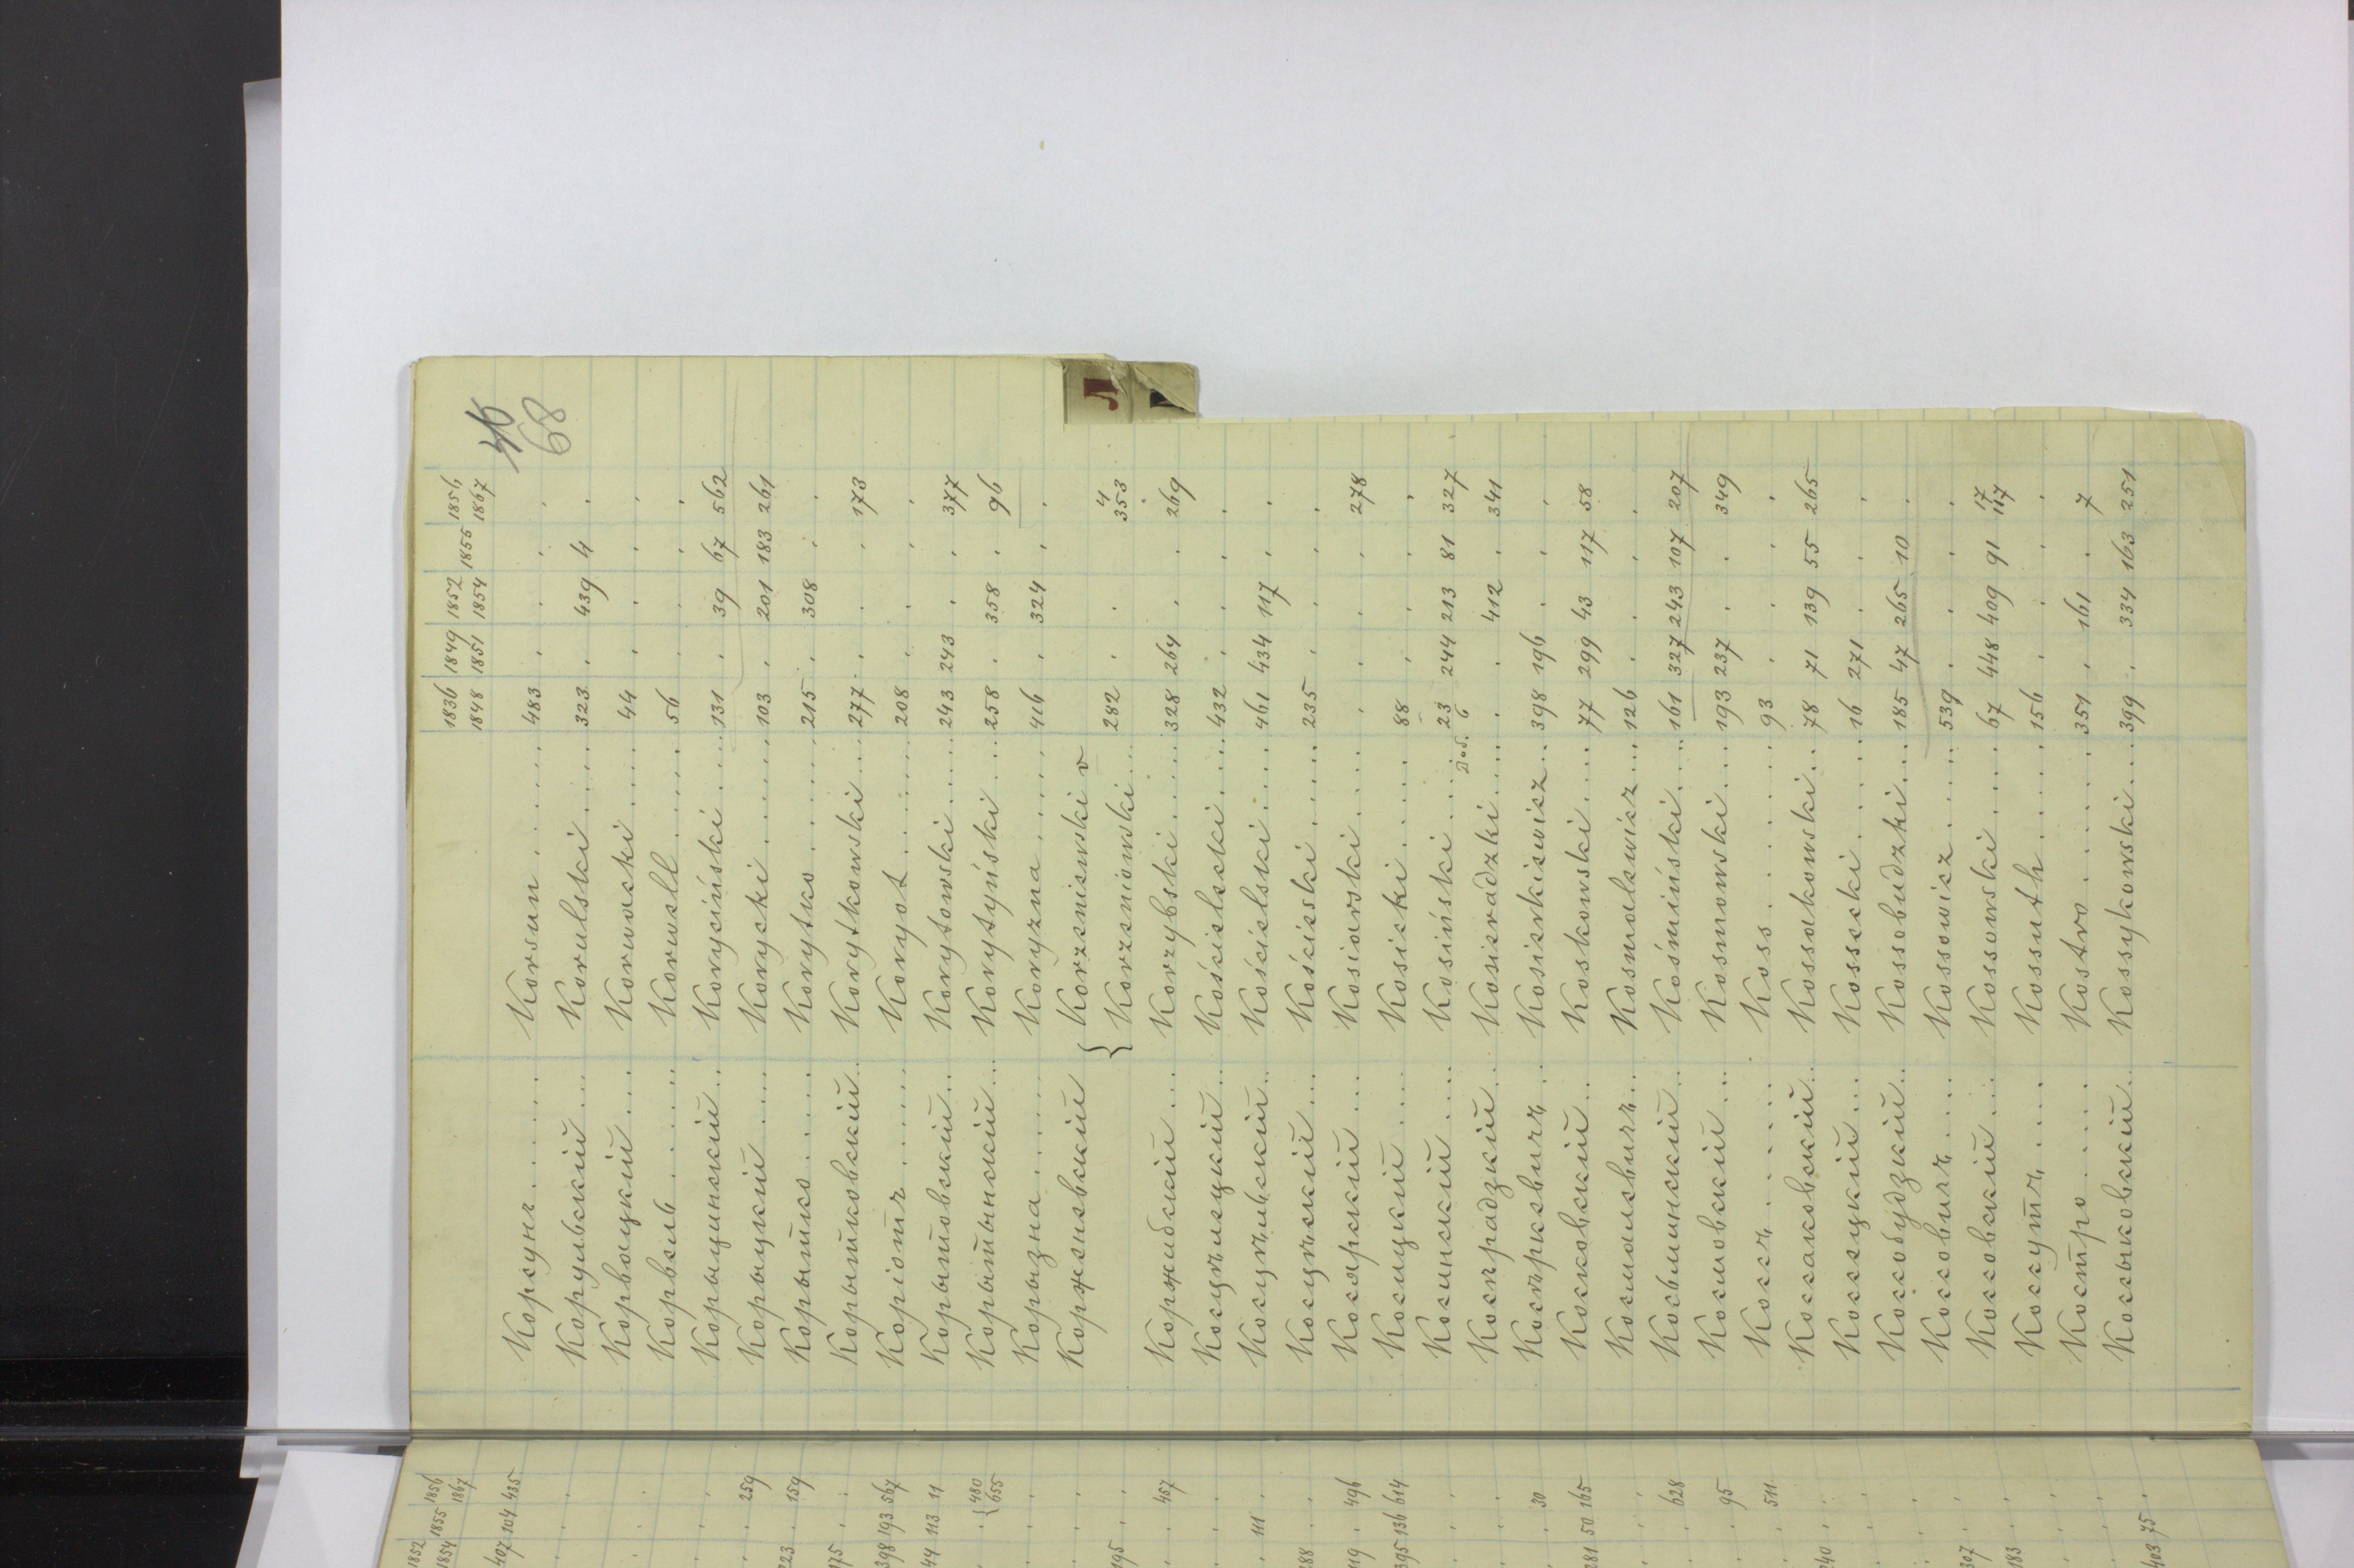 45
68
1836 1849 1852 1855 1856
1848 1851 1854 1867
Корсунъ...... Korsun...... 483 . . . .
Корульскій.... Korulski..... 323 . 439 4 .
Корвацкій.... Korwacki.... 44 . . . .
Корвель...... Korwell..... 56 . . . .
Корыцинскій.. Koryciński.... 131 . 39 67 562
Корыцкій..... Korycki...... 103 . 201 183 261
Корытко...... Korytko...... 215 . 308 . .
Корытковскій.. Korytkowski... 277 . . . 173
Коріотъ...... Koryot...... 208 . . . .
Корытовскій... Korytowski.... 243 243 . . 377
Корытынскій... Korytyński.... 258 . 358 . 96
Корызна...... Koryzna..... 416 . 324 . .
Корженевскій { Korzeniewski v
Korzeniowski... 282 . . . 4 353
Коржибскій.... Korzybski..... 328 264 . . 269
Косцѣлецкій.. Kościelecki.... 432 . . . .
Косцѣльскій.. Kościelski.... 461 434 117 . .
Косцѣскій.... Kościeski..... 235 . . . .
Косярскій.... Kosiarski..... . . . . 278
Косецкій..... Kosiecki..... 88 . . . .
Косинскій.... Kosiński..... 23 244 213 81 327
Доб. 6
Косѣрадзкій.. Kosieradzki.... . . 412 . 341
Косѣркевичъ.. Kosierkiewicz... 398 196 . . .
Косковскій... Koskowski.... 77 299 43 117 58
Космалевичъ... Kosmalewicz... 126 . . . .
Косьминскій.. Kośmiński.... 161 327 243 107 207
Космовскій... Kosmowski.... 193 237 . . 349
Коссъ....... Koss....... 93 . . . .
Коссаковскій.. Kossakowski... 78 71 139 55 265
Коссецкій.... Kossecki..... 16 271 . . .
Коссобудзкій.. Kossobudzki... 185 47 265 10 .
Коссовичъ.... Kossowicz..... 539 . . . .
Коссовскій... Kossowski..... 67 448 409 91 17
117
Коссутъ..... Kossuth..... 156 . . . .
Костро...... Kostro...... 351 . 161 . 7
Коссыковскій.. Kossykowski... 399 . 334 163 251
Л
1852 1855 1856
1854 1867
407 104 435
259
159
398 193 567
44 113 11
{ 480
655
195
457
111
496
395 136 614
30
281 50 165
628
95
511
307
183
403 75